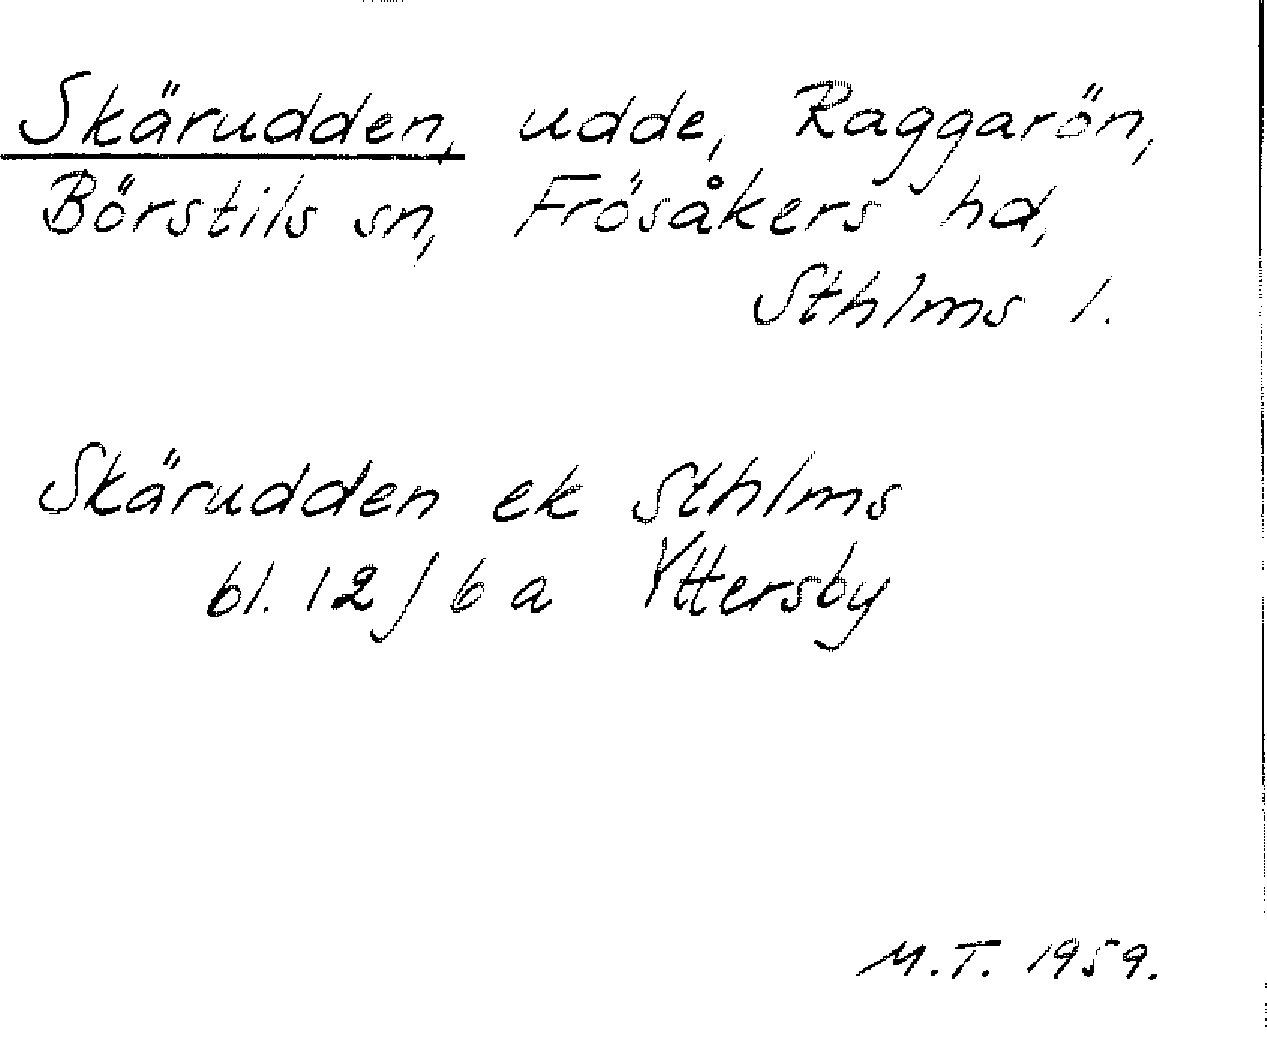 Skärudden, udde, Raggarön,
Börstils sn, Frösåkers hd,
Sthlms l.
Skärudden ek Sthlms
bl. 12/6 a Yttersby
M.T. 1959.